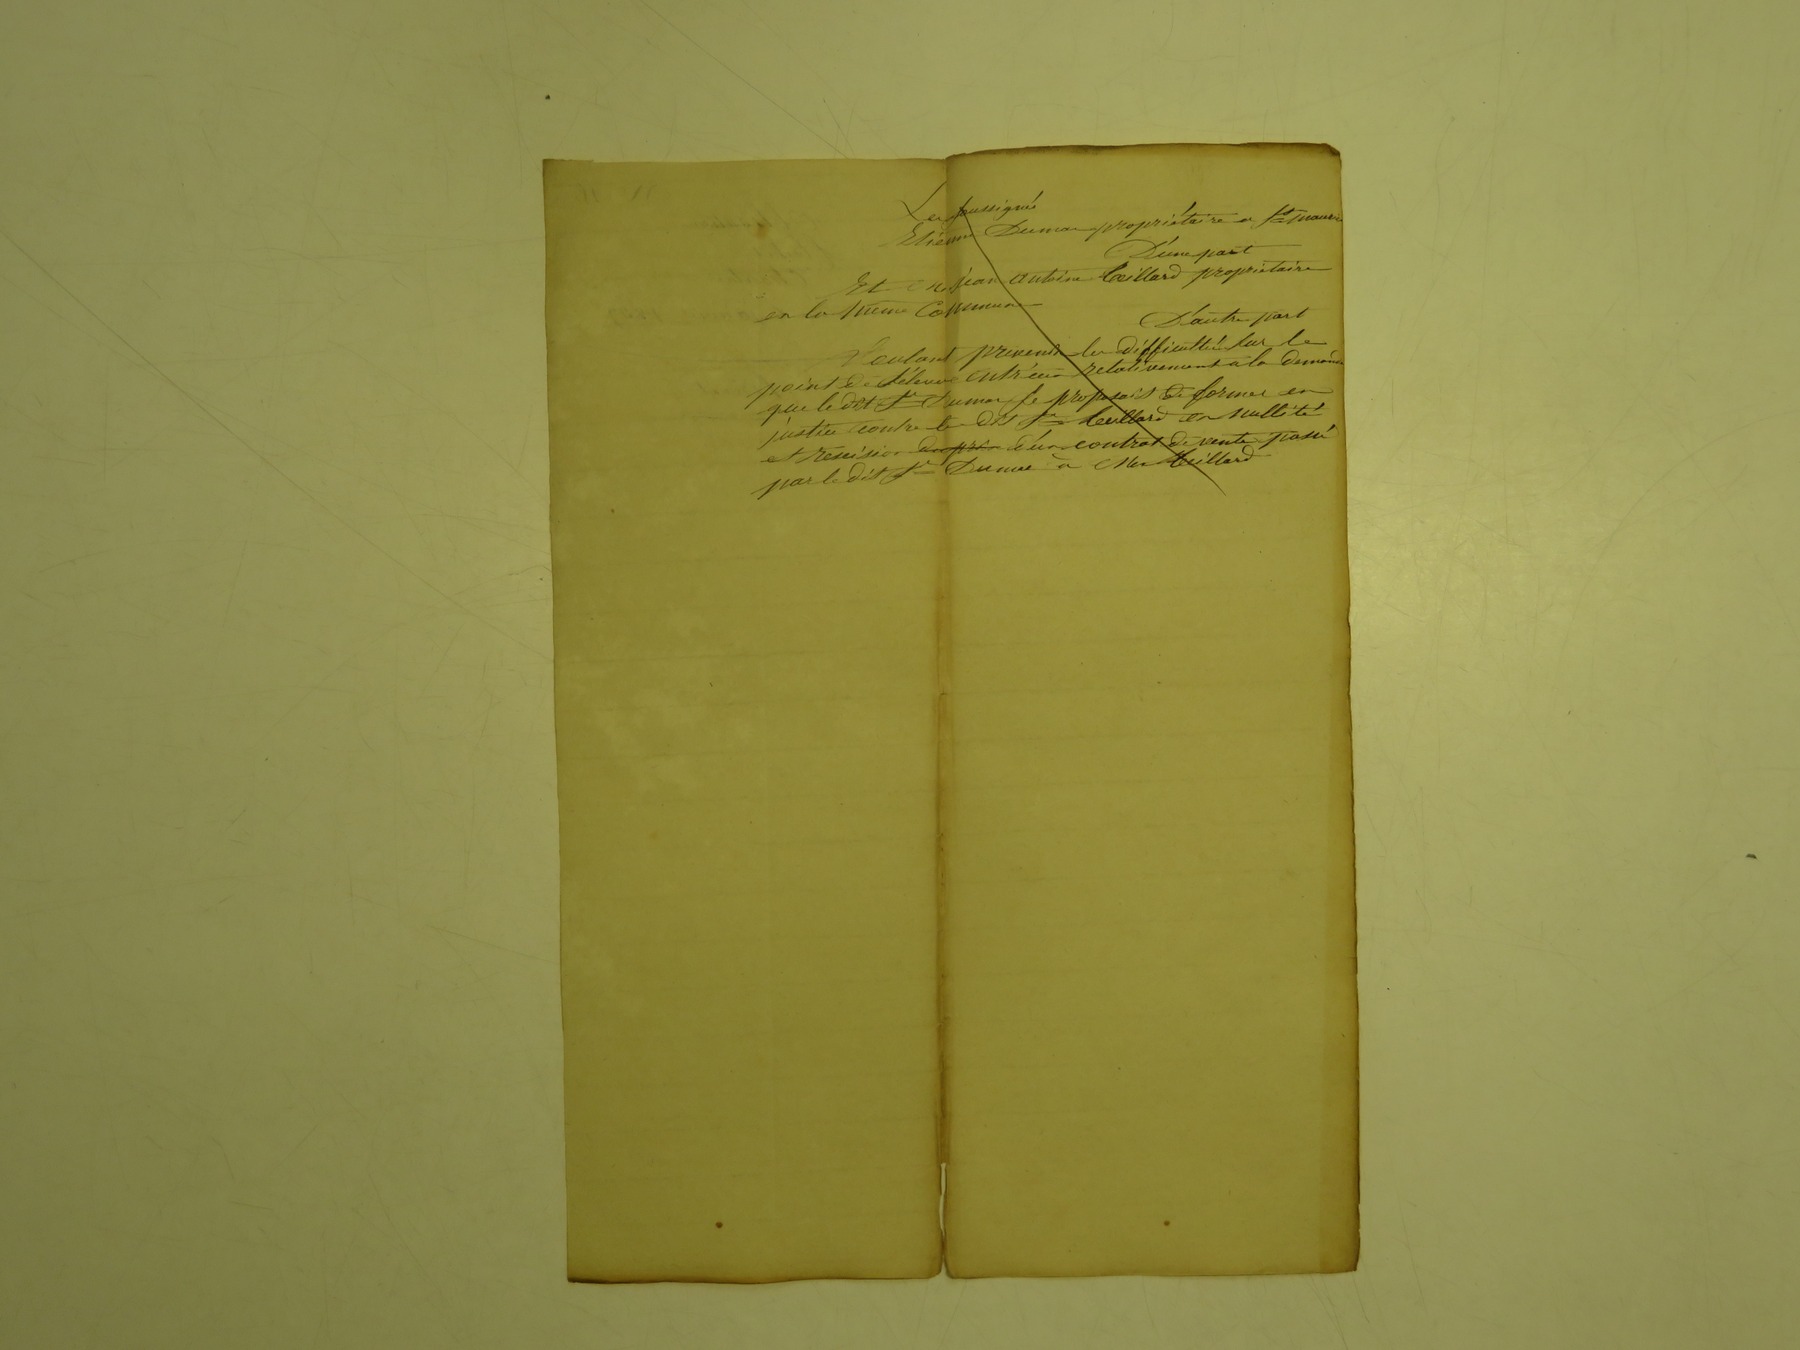 Les soussignés
Etienne Dumas propriétaire a St maurice
D'une part
Et Mr jean antoine Ceillard propriétaire
en la meme Commune
D'autre part
Voulant prevenir les difficultés sur le
point de s'élever entr'eux relativement a la demande
que le dit Sr Dumas se proposait de former en
justice contre le dit Sr Ceillard en nullité
et rescision d'un contrat de vente passé
par le dit Sr Dumas à Mr Ceillard